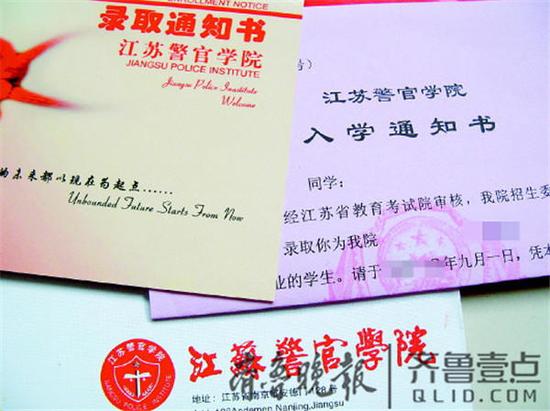 ENROLLMENT NOTICE
录取通知书
江苏警官学院
JIANGSU POLICE INSTITUTE
Jiangsu Police Institute
Welcome
的未来都以现在为起点……
Unbounded Future Starts From Now
号）
江苏警官学院
入学通知书
同学：
经江苏省教育考试院审核，我院招生委
录取你为我院
年九月一日，凭本
业的学生。请于
江苏警官学院
JIANGSU POLICE INSTITUTE
江蘇警官學院
地址：江苏省南京市安德门128号
Andemen Nanjing, Jiangsu
齐鲁晚报
齐鲁壹点
QLID.COM